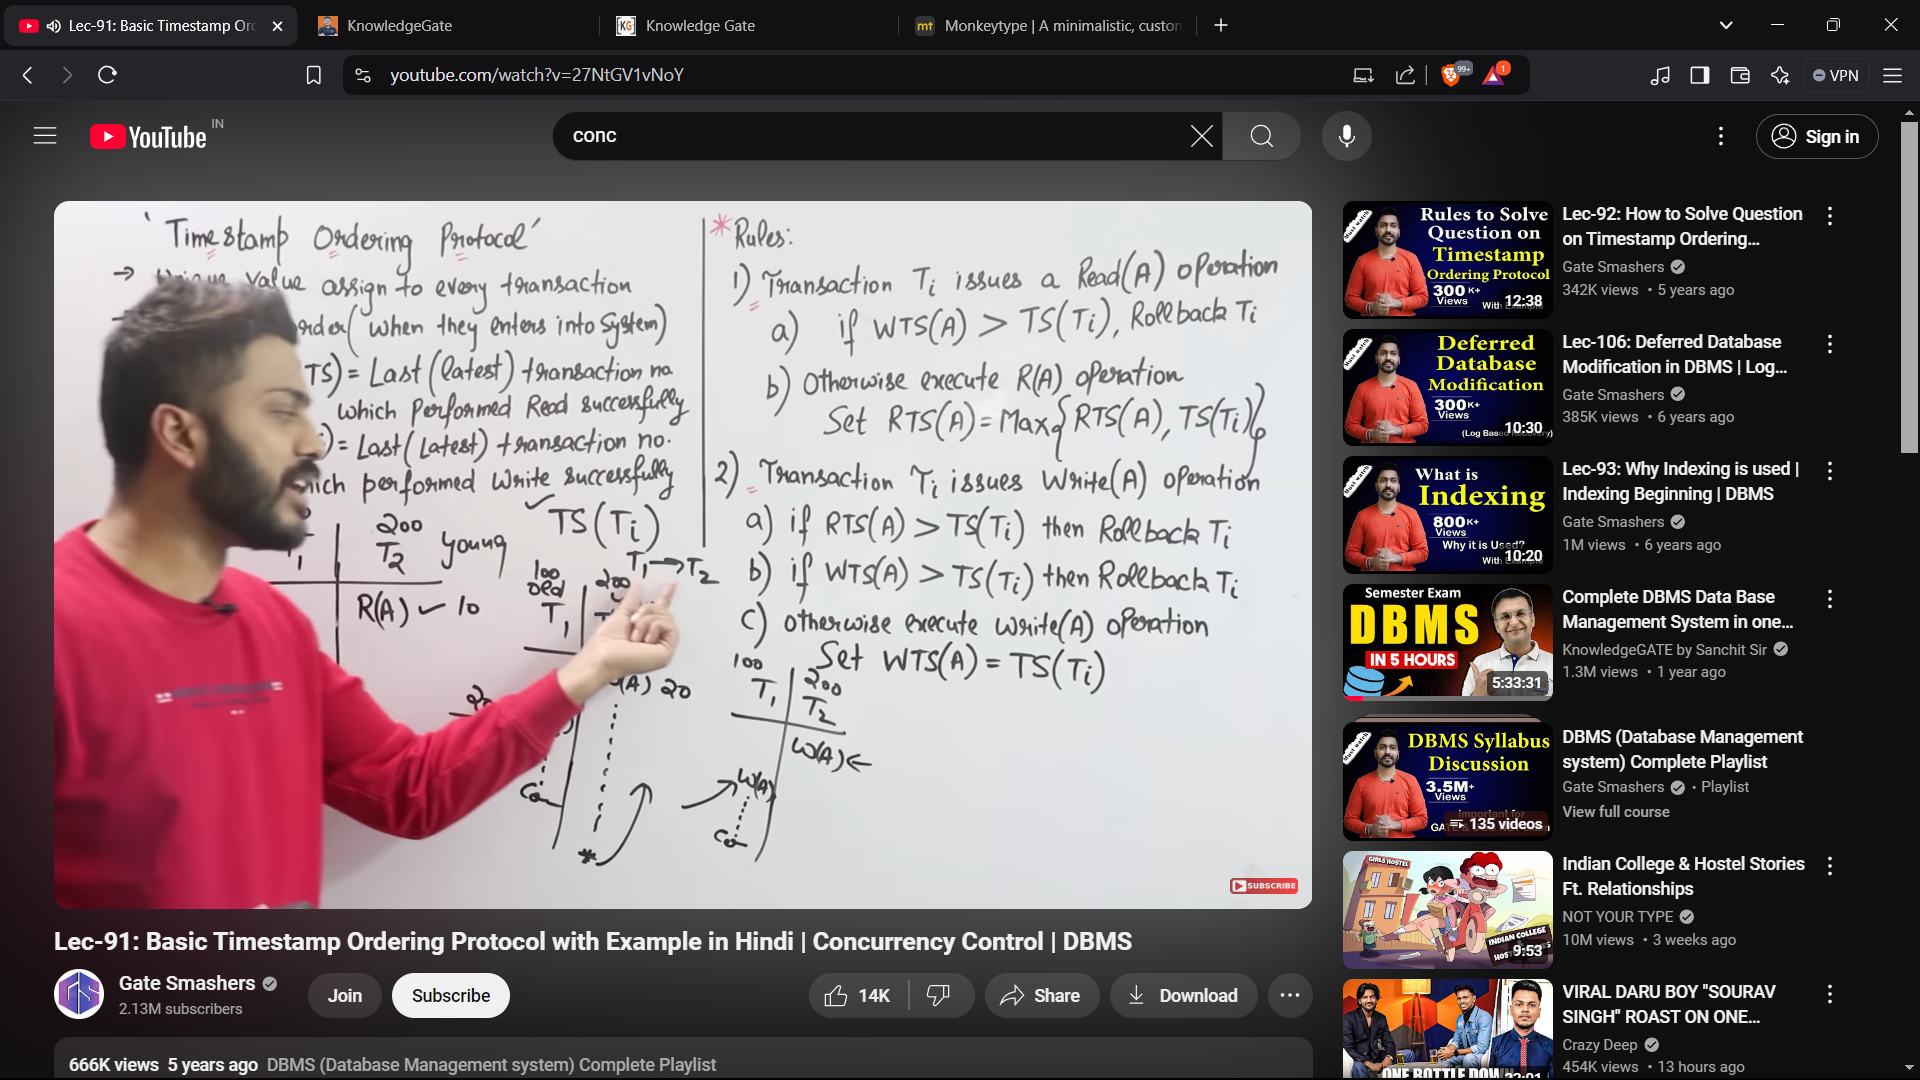 Lec-91: Basic Timestamp Or
KnowledgeGATE
Knowledge Gate
mt Monkeytype | A minimalistic, custon
youtube.com/watch?v=27NtGV1vNoY
99+
1
VPN
YouTube IN
conc
Sign in
'Timestamp Ordering Protocol'
→ value assign to every transaction
order (when they enters into System)
TS) = Last (latest) transaction no
which performed Read successfully
) = Last (Latest) transaction no.
performed Write successfully
TS(Ti)
200
T2 young
R(A) ✓ 10
100
old
T1
200
T1 → T2
(A) 20
Co
*
*Rules:
1) Transaction Ti issues a Read(A) operation
a) if WTS(A) > TS(Ti), Rollback Ti
b) Otherwise execute R(A) operation
Set RTS(A) = Max{RTS(A), TS(Ti)}
2) Transaction Ti issues Write(A) operation
a) if RTS(A) > TS(Ti) then Rollback Ti
b) if WTS(A) > TS(Ti) then Rollback Ti
c) otherwise execute write(A) operation
Set WTS(A) = TS(Ti)
100
T1
200
T2
W(A) ←
W(A)
Co
SUBSCRIBE
Lec-91: Basic Timestamp Ordering Protocol with Example in Hindi | Concurrency Control | DBMS
Gate Smashers
2.13M subscribers
Join
Subscribe
14K
Share
Download
666K views 5 years ago DBMS (Database Management system) Complete Playlist
Must watch
Rules to Solve
Question on
Timestamp
Ordering Protocol
300 K+
Views
12:38
Lec-92: How to Solve Question
on Timestamp Ordering...
Gate Smashers
342K views • 5 years ago
Must watch
Deferred
Database
Modification
300 K+
Views
(Log Based Recovery)
10:30
Lec-106: Deferred Database
Modification in DBMS | Log...
Gate Smashers
385K views • 6 years ago
Must watch
What is
Indexing
800 K+
Views
Why it is Used?
10:20
Lec-93: Why Indexing is used |
Indexing Beginning | DBMS
Gate Smashers
1M views • 6 years ago
Semester Exam
DBMS
IN 5 HOURS
5:33:31
Complete DBMS Data Base
Management System in one...
KnowledgeGATE by Sanchit Sir
1.3M views • 1 year ago
Must watch
DBMS Syllabus
Discussion
3.5M+
Views
Important for
135 videos
DBMS (Database Management
system) Complete Playlist
Gate Smashers • Playlist
View full course
GIRLS HOSTEL
INDIAN COLLEGE
9:53
Indian College & Hostel Stories
Ft. Relationships
NOT YOUR TYPE
10M views • 3 weeks ago
ONE BOTTLE DOWN
VIRAL DARU BOY "SOURAV
SINGH" ROAST ON ONE...
Crazy Deep
454K views • 13 hours ago